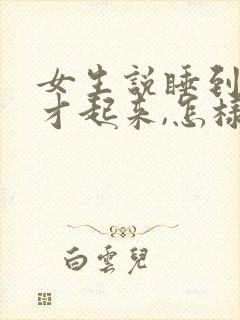 女生説睡到
才起来,怎樣
白雲兒